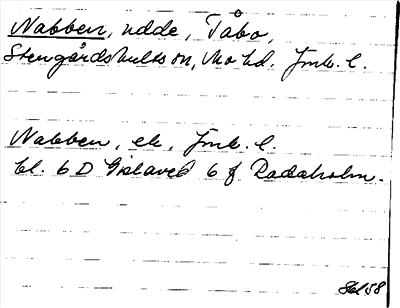 Nabben, udde, Tåbo,
Stengårdshults sn, Mo hd. Jmk. l.
Nabben, ek, Jmk. l.
bl. 6 D Gislaved 6 f Radaholm.